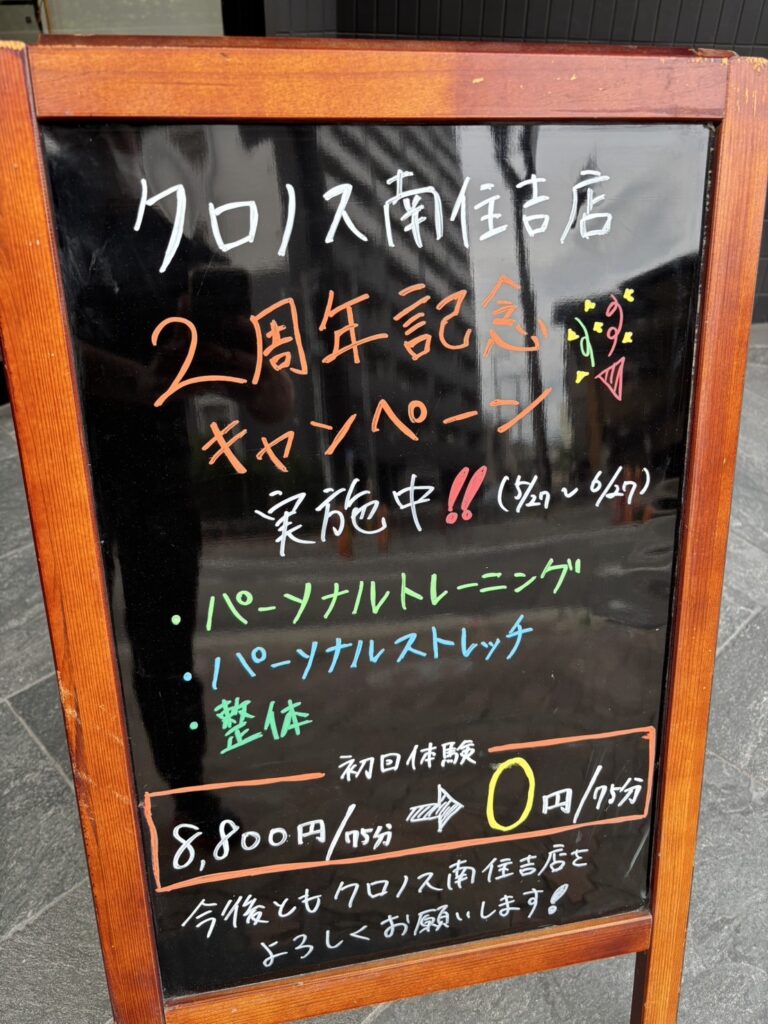 クロノス南住吉店
2周年記念
キャンペーン
実施中!! (5/27〜6/27)
・パーソナルトレーニング
・パーソナルストレッチ
・整体
初回体験
8,800円/75分 ⇨ 0円/75分
今後ともクロノス南住吉店を
よろしくお願いします!